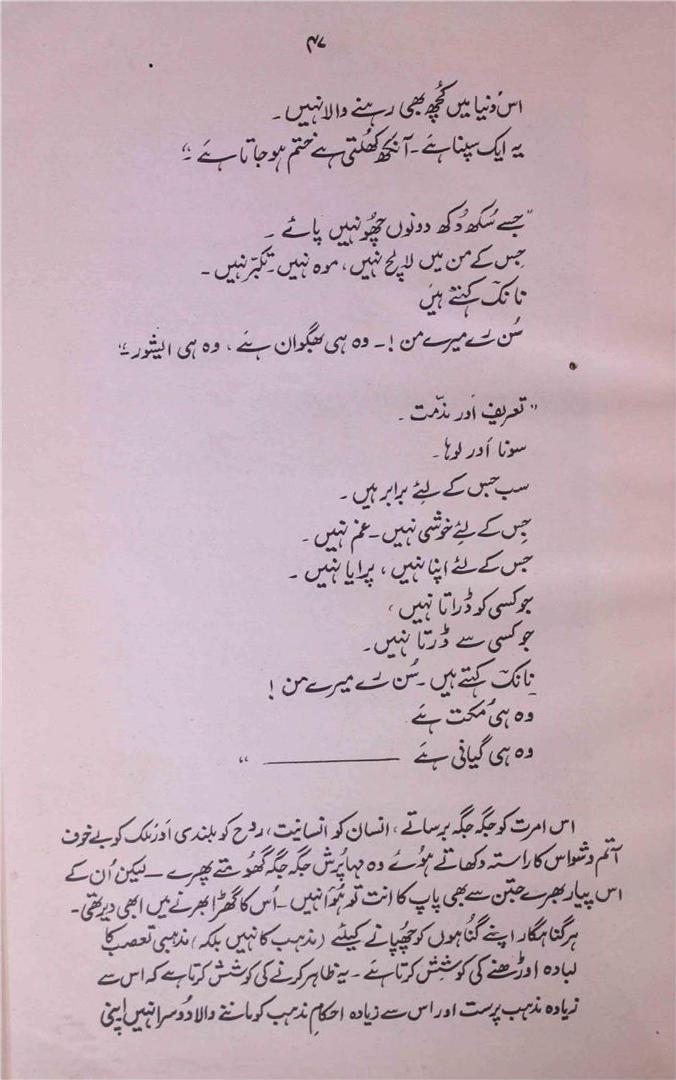 ۴۷
اس دُنیا میں کُچھ بھی رہنے والا نہیں۔
یہ ایک سپنا ہے۔ آنکھ کھُلتی ہے ختم ہو جاتا ہے۔“
”جسے سُکھ دُکھ دونوں چھُو نہیں پائے۔
جِس کے من میں لالچ نہیں، موہ نہیں۔ تکبّر نہیں۔
نانک کہتے ہیں
سُن رے میرے من!۔ وہ ہی بھگوان ہے، وہ ہی ایشور۔“
”تعریف اَور مذمّت۔
سونا اَور لوہا۔
سب جس کے لئے برابر ہیں۔
جِس کے لِئے خوشی نہیں۔ غم نہیں۔
جس کے لئے اپنا نہیں، پرایا نہیں۔
جو کسی کو ڈراتا نہیں،
جو کسی سے ڈرتا نہیں۔
نانک کہتے ہیں۔ سُن رے میرے من!
وہ ہی مُکت ہے
وہ ہی گیانی ہے ———— “
اس امرت کو جگہ جگہ برساتے، انسان کو انسانیت، روح کو بلندی اَور مُلک کو بے خوف
آتم وشواس کا راستہ دکھاتے ہوُئے وہ مہاپُرش جگہ جگہ گھُومتے پھرے — لیکن اُن کے
اس پیار بھرے جتن سے بھی پاپ کا انت تو ہُوا نہیں۔ اُس کا گھڑا بھرنے میں ابھی دیر تھی۔
ہر گناہگار اپنے گُناہوں کو چھُپانے کیلئے (مذہب کا نہیں بلکہ) مذہبی تعصب کا
لبادہ اوڑھنے کی کوشش کرتا ہے۔ یہ ظاہر کرنے کی کوشش کرتا ہے کہ اس سے
زیادہ مذہب پرست اور اس سے زیادہ احکامِ مذہب کو ماننے والا دُوسرا نہیں اپنی